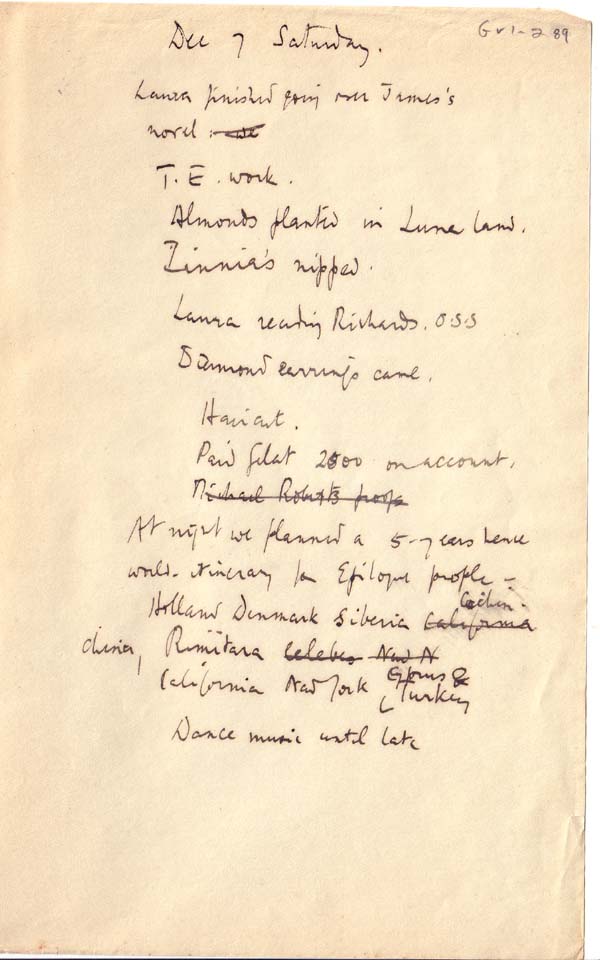 Gv1-2 89
Dec 7 Saturday.
Laura finished going over James's
novel: we
T.E. work.
Almonds planted in Luna land.
Zinnia's nipped.
Laura reading Richards. O.S.S
Diamond earrings came.
Haircut.
Paid Gelat 2500 on account.
Michael Roberts proofs
At night we planned a 5-years hence
world-itinerary for Epilogue people –
Holland Denmark Siberia California Cochin-
China, Rimitara Celebes New N
California New York Cyprus & Turkey
Dance music until late